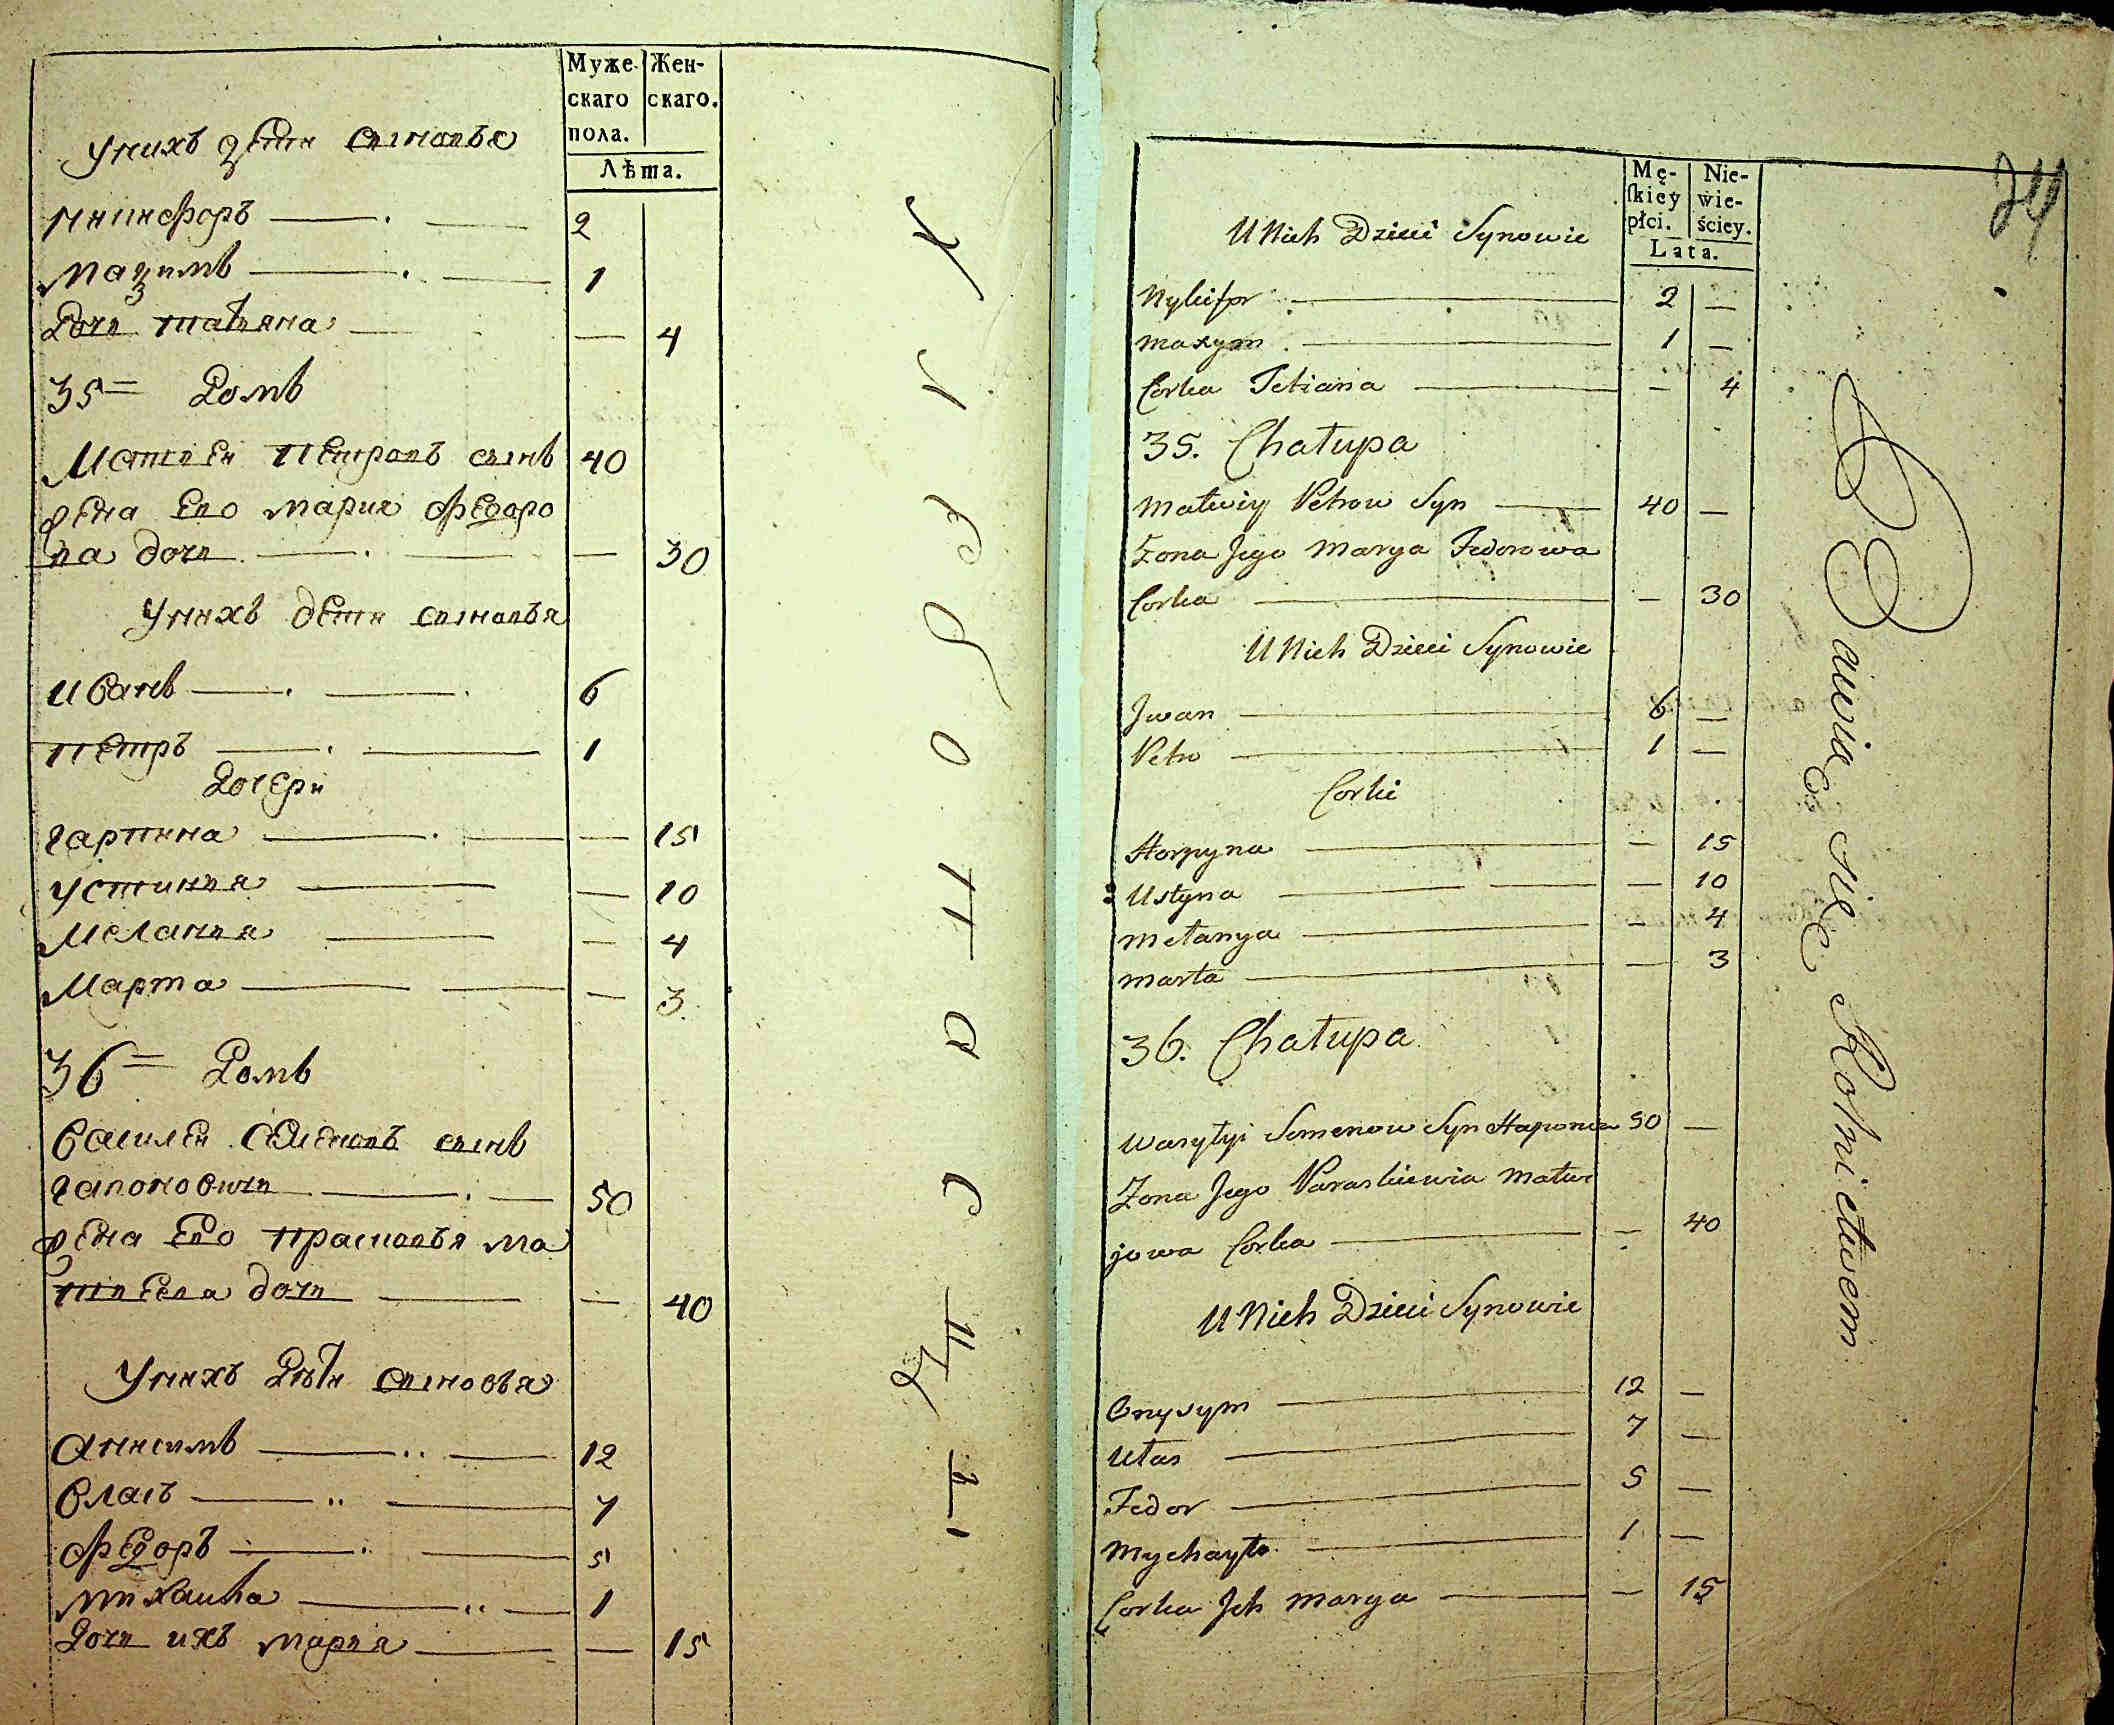 Муже-
скаго
пола.
Жен-
скаго.
Лѣта.
Унихъ дети сыновья
Никифоръ — 2
Мазимъ — 1
Дочь татьяна — — 4
35= Домъ
Матвей петровъ сынъ 40
жена его мария Федоро
ва дочь — — 30
Унихъ дети сыновья
Иванъ — 6
петръ — 1
Дочери
гарпина — — 15
устинья — — 10
Меланья — — 4
Марта — — 3
36= Домъ
Василей Семеновъ сынъ
гапоновичъ — 50
жена его прасковья ма
твеева дочь — — 40
Унихъ Дѣти сыновья
Анисимъ — 12
Власъ — 7
Федоръ — 5
михаила — 1
Дочь ихъ марья — — 15
Хлебопашествомъ
24
Mę-
skiey
płci.
Nie-
wie-
ściey.
Lata.
U Nich Dzieci Synowie
Nykifor — 2 —
Maxym — 1 —
Corka Tetiana — — 4
35. Chałupa
Matwiy Petrow Syn — 40 —
Zona Jego Marya Fedorowa
Corka — — 30
U Nich Dzieci Synowie
Jwan — 6 —
Petro — 1 —
Corki
Horpyna — — 15
Ustyna — — 10
Mełanya — — 4
Marta — — 3
36. Chałupa
Wasylyi Semenow Syn Haponow 50 —
Zona Jego Paraskiewia Matwi
jowa Corka — — 40
U Nich Dzieci Synowie
Onysym — 12 —
Ułas — 7 —
Fedor — 5 —
Mychayło — 1 —
Corka Jch Marya — — 15
Bawią się Rolnictwem